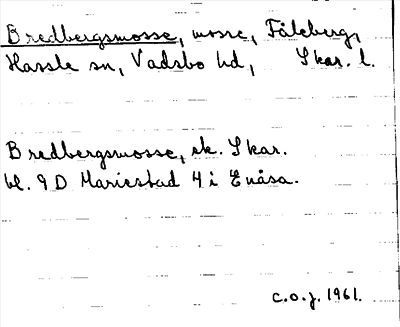 Bredbergsmosse, mosse, Fåleberg,
Hassle sn, Vadsbo hd, Skar. l.
Bredbergsmosse, ek. Skar.
bl. 9 D Mariestad 4 i Enåsa.
C.O.J. 1961.